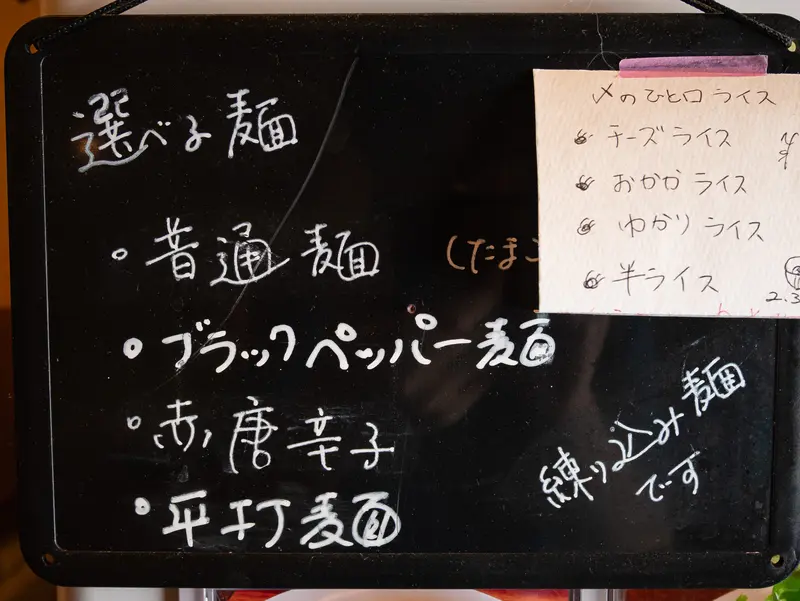 選べる麺
普通麺 (たまご
ブラックペッパー麺
赤唐辛子
平打麺
練り込み麺
です
〆のひと口ライス
チーズライス
おかかライス
ゆかりライス
半ライス